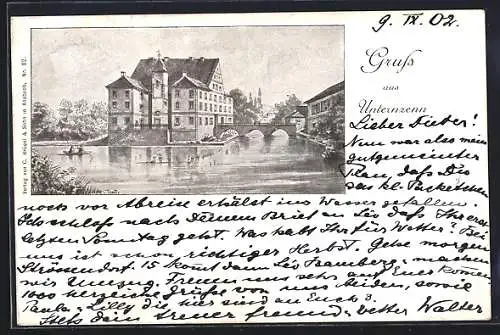 9. IX. 02.
Gruß
aus
Unternzenn
Verlag von C. Brügel & Sohn in Ansbach, Nr. 82.
Lieber Dieter!
Nun war also mein
gutgemeinter
Plan, daß Du
das kl. Packetchen
noch vor Abreise erhältst ins Wasser gefallen.
Ich schloß nach Deinem Brief an daß Ihr erst
letzten Sonntag geht. Was habt Ihr für Wetter? Bei
uns ist schon richtiger Herbst. Gehe morgen
15 komt dann machen
wir Umzug. Freuen uns sehr auf Euer kommen
1000 herzliche Grüße von uns beiden, sowie
Paula & Lilly die hier sind an Euch 3.
Stets dein treuer freund & vetter Walter